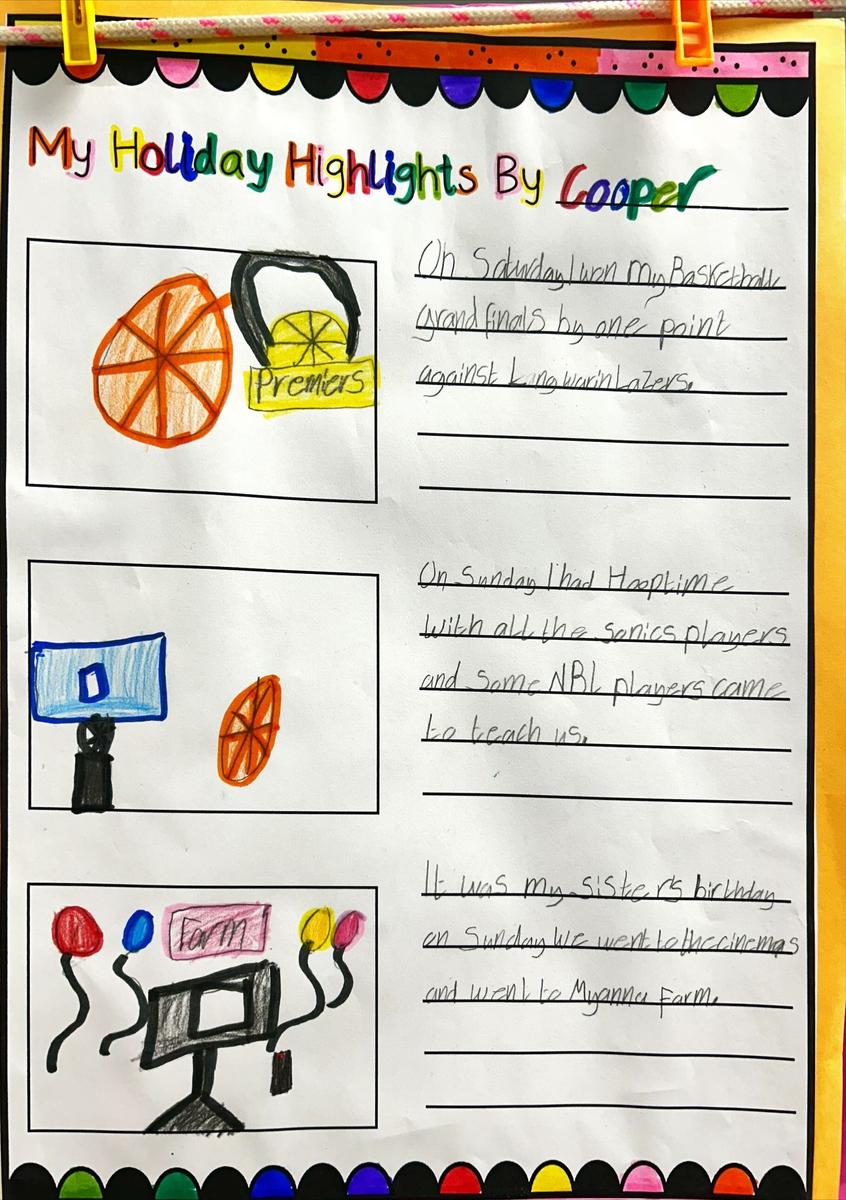 My Holiday Highlights By Cooper
Premiers
On Saturday I won my Basketball
grand finals by one point
against Langwarin Lazers.
On Sunday I had Hooptime
with all the sonics players
and some NBL players came
to teach us.
Farm
It was my sister's birthday
on Sunday We went to the cinemas
and went to Myanna Farm.